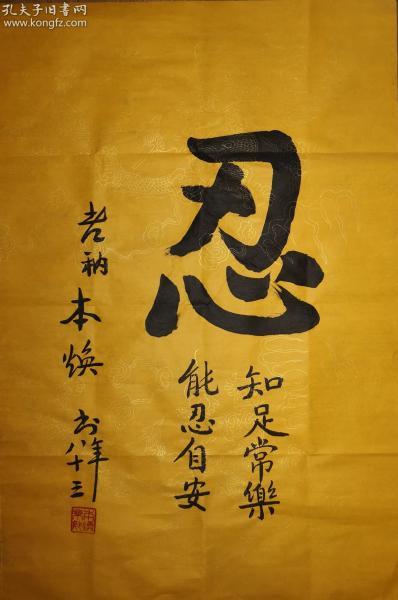 孔夫子旧書网
www.kongfz.com
忍
知足常樂
能忍自安
老衲
本焕
书年八十三